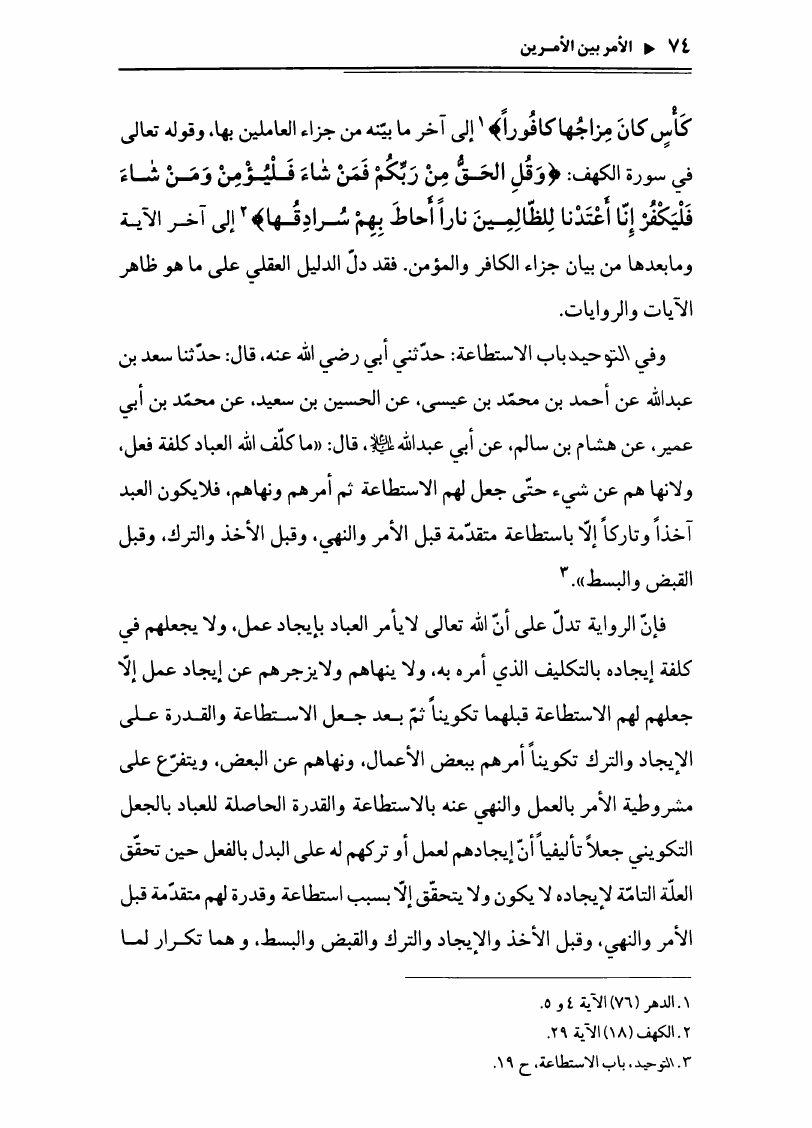 ٧٤ ▶ الأمر بين الأمـرين
كَأْسٍ كانَ مِزاجُها كافُوراً﴾١ إلى آخر ما بيّنه من جزاء العاملين بها، وقوله تعالى
في سورة الكهف: ﴿وَقُلِ الحَـقُّ مِنْ رَبِّكُمْ فَمَنْ شاءَ فَـلْيُـؤْمِنْ وَمَـنْ شـاءَ
فَلْيَكْفُرْ إِنّا أَعْتَدْنا لِلظّالِمِـينَ ناراً أَحاطَ بِهِمْ سُـرادِقُـها﴾٢ إلى آخـر الآيـة
ومابعدها من بيان جزاء الكافر والمؤمن. فقد دلّ الدليل العقلي على ما هو ظاهر
الآيات والروايات.
وفي التوحيد باب الاستطاعة: حدّثني أبي رضي الله عنه، قال: حدّثنا سعد بن
عبدالله عن أحمد بن محمّد بن عيسى، عن الحسين بن سعيد، عن محمّد بن أبي
عمير، عن هشام بن سالم، عن أبي عبدالله عليه السلام، قال: «ما كلّف الله العباد كلفة فعل،
ولانها هم عن شيء حتّى جعل لهم الاستطاعة ثم أمرهم ونهاهم، فلايكون العبد
آخذاً وتاركاً إلّا باستطاعة متقدّمة قبل الأمر والنهي، وقبل الأخذ والترك، وقبل
القبض والبسط».٣
فإنّ الرواية تدلّ على أنّ الله تعالى لايأمر العباد بإيجاد عمل، ولا يجعلهم في
كلفة إيجاده بالتكليف الذي أمره به، ولا ينهاهم ولايزجرهم عن إيجاد عمل إلّا
جعلهم لهم الاستطاعة قبلهما تكويناً ثمّ بـعد جعل الاسـتطاعة والقـدرة عـلى
الإيجاد والترك تكويناً أمرهم ببعض الأعمال، ونهاهم عن البعض، ويتفرّع على
مشروطية الأمر بالعمل والنهي عنه بالاستطاعة والقدرة الحاصلة للعباد بالجعل
التكويني جعلاً تأليفياً أنّ إيجادهم لعمل أو تركهم له على البدل بالفعل حين تحقّق
العلّة التامّة لإيجاده لا يكون ولا يتحقّق إلّا بسبب استطاعة وقدرة لهم متقدّمة قبل
الأمر والنهي، وقبل الأخذ والإيجاد والترك والقبض والبسط، و هما تكـرار لمـا
١. الدهر (٧٦) الآية ٤ و ٥.
٢. الكهف (١٨) الآية ٢٩.
٣. التوحيد، باب الاستطاعة، ح ١٩.